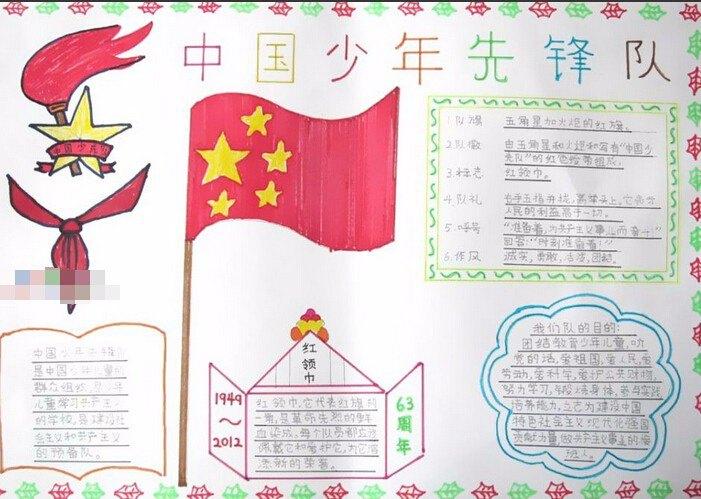 中国少年先锋队
中国少先队
1.队旗 五角星加火炬的红旗。
2.队徽 由五角星和火炬和写有"中国少
先队"的红色绶带组成。
3.标志 红领巾。
4.队礼 右手五指并拢,高举头上,它表示
人民的利益高于一切。
5.呼号 "准备着,为共产主义事业而奋斗!"
回答:"时刻准备着!"
6.作风 诚实,勇敢,活泼,团结。
中国少年先锋队
是中国少年儿童的
群众组织,是少年
儿童学习共产主义
的学校,是建设社
会主义和共产主义
的预备队。
红领巾
1949
~
2012
红领巾,它代表红旗的
一角,是革命先烈的鲜
血染成,每个队员都应该
佩戴它和爱护它,为它增
添新的荣誉。
63周年
我们队的目的:
团结教育少年儿童,听
党的话,爱祖国,爱人民,爱
劳动,爱科学,爱护公共财物,
努力学习,锻炼身体,参与实践,
培养能力,立志为建设中国
特色社会主义现代化强国
贡献力量,做共产主义事业的接
班人。